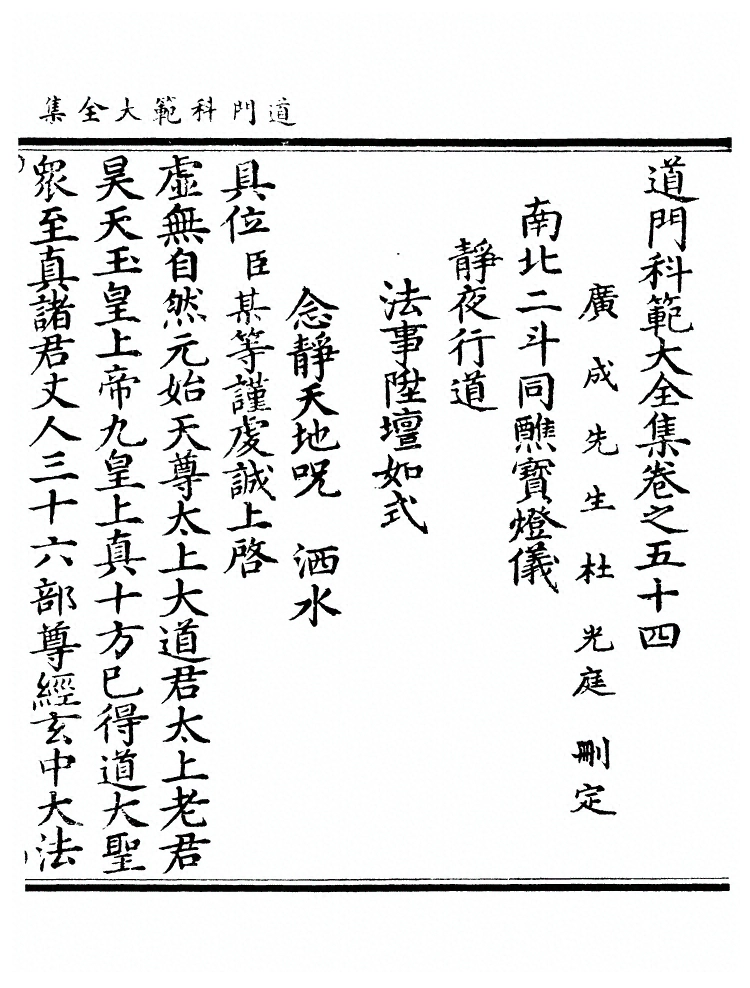 道門科範大全集
道門科範大全集卷之五十四
廣成先生杜光庭刪定
南北二斗同醮寳燈儀
靜夜行道
法事陞壇如式
念靜天地呪　洒水
具位臣某等謹虔誠上啓
虛無自然元始天尊太上大道君太上老君
昊天玉皇上帝九皇上真十方已得道大聖
衆至真諸君丈人三十六部尊經玄中大法